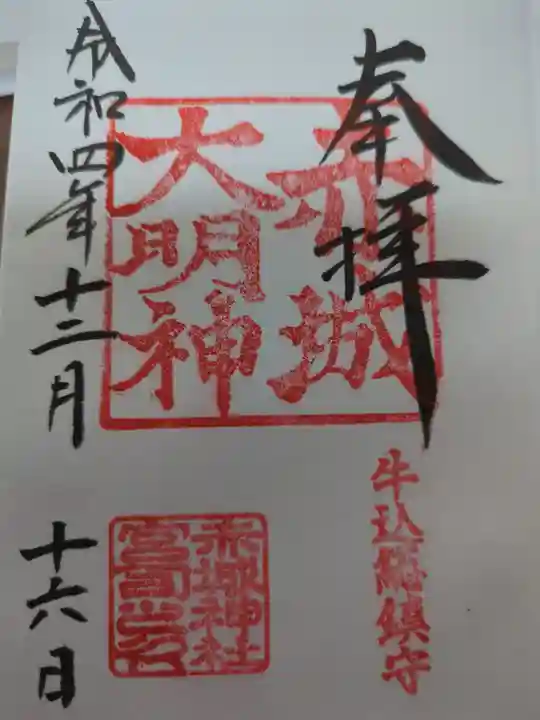 奉拝
赤城
大明神
牛込總鎮守
赤城神社
宮司之印
令和四年十二月十六日